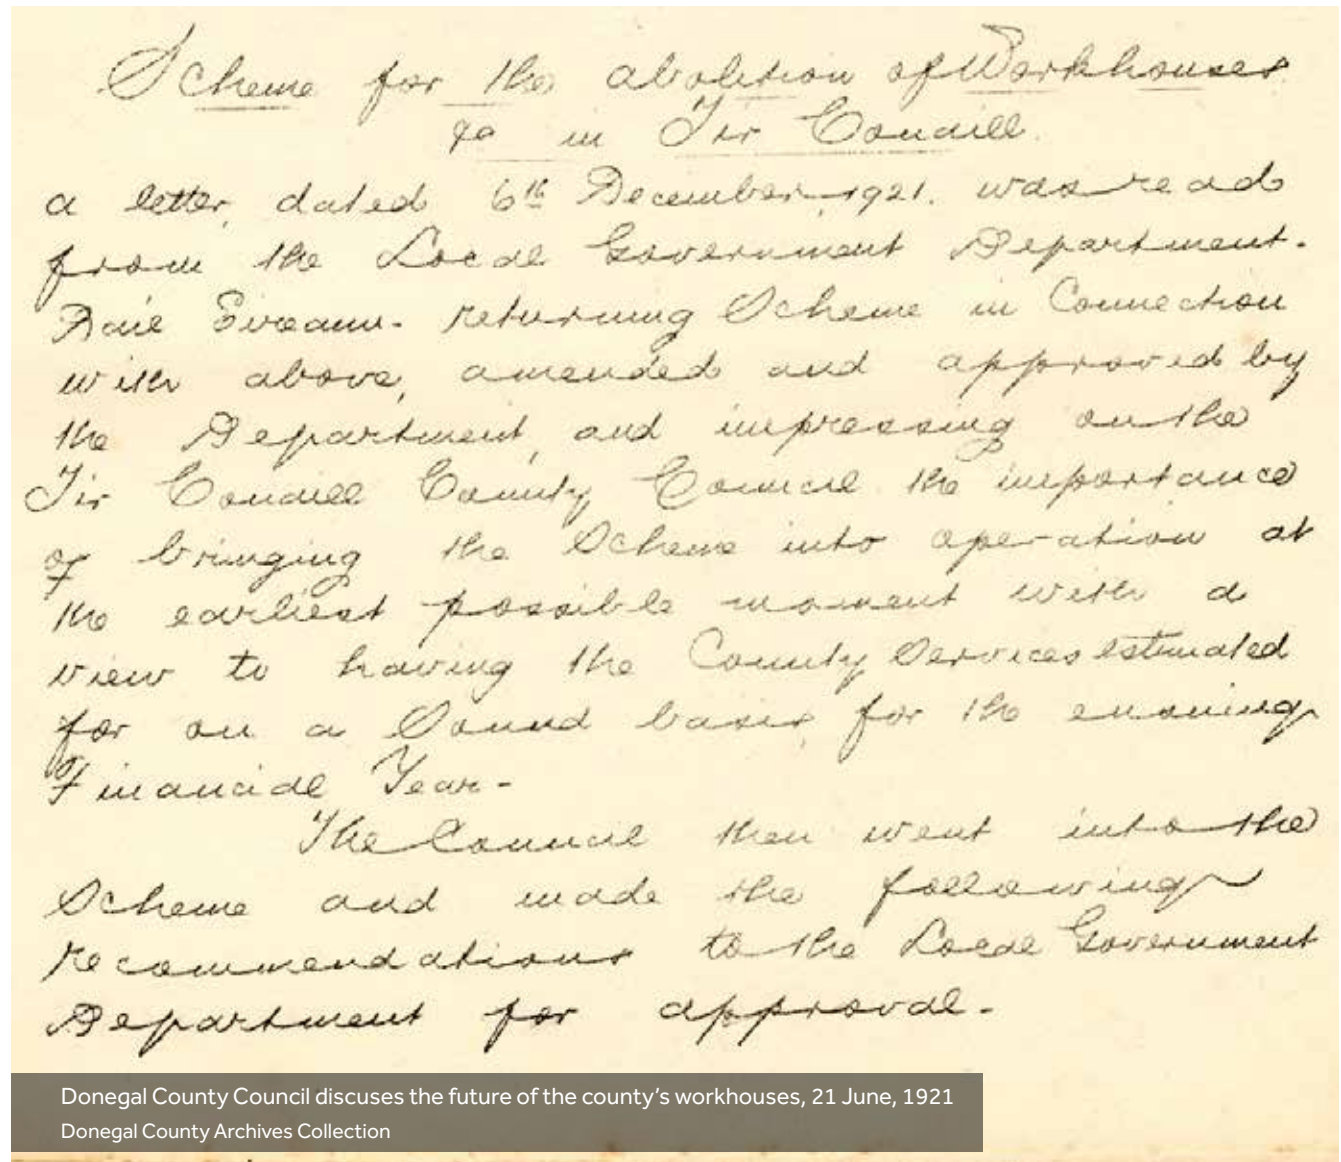 Scheme for the abolition of Workhouses
&c in Tir Conaill.
a letter, dated 6th December, 1921. was read
from the Local Government Department.
Dail Eireann. returning Scheme in Connection
with above, amended and approved by
the Department, and impressing on the
Tir Conaill County Council the importance
of bringing the Scheme into operation at
the earliest possible moment with a
view to having the County Services estimated
for on a Sound basis, for the ensuing
Financial Year-
The Council then went into the
Scheme and made the following
recommendations to the Local Government
Department for approval.-
Donegal County Council discuses the future of the county's workhouses, 21 June, 1921
Donegal County Archives Collection